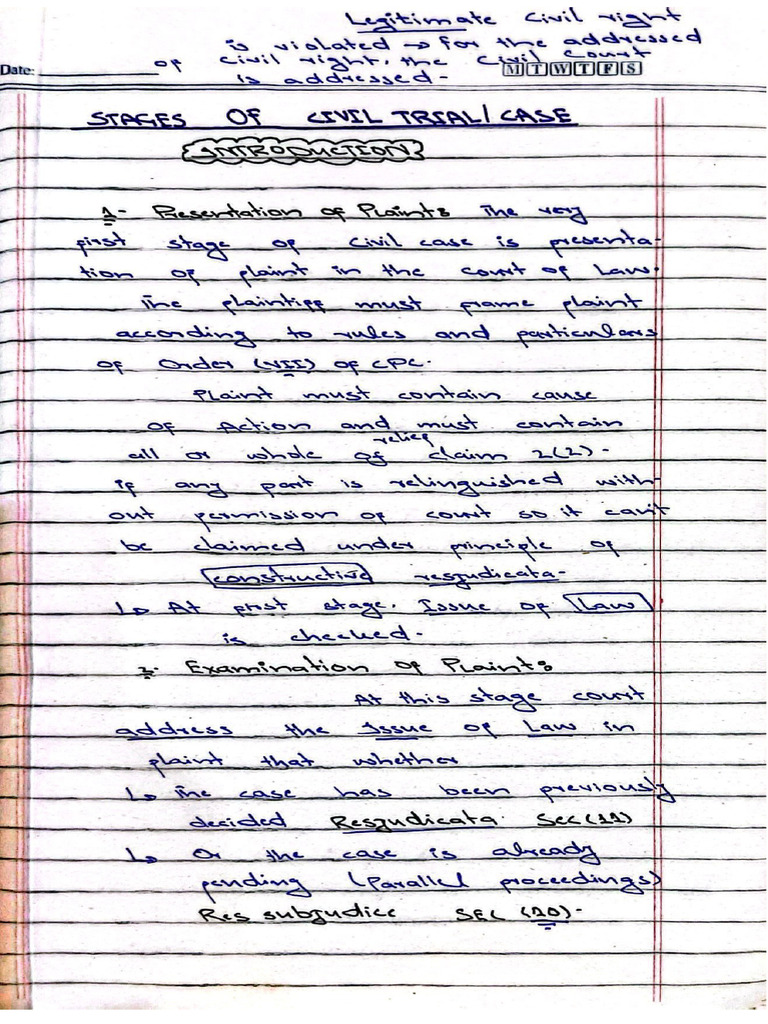 Legitimate Civil right
is violated → for the addressed
of civil right, the Civil Court
is addressed-
Date:
M T W T F S
STAGES OF CIVIL TRIAL/CASE
INTRODUCTION
1- Presentation of Plaint: The very
first stage of civil case is presenta-
tion of plaint in the court of Law.
The plaintiff must frame plaint
according to rules and particulars
of Order (VII) of CPC.
Plaint must contain cause
of Action and must contain
relief
all or whole of claim 2(2)-
if any part is relinquished with-
out permission of court so it can't
be claimed under principle of
constructive resjudicata-
↳ At first stage. Issue of Law
is checked-
2- Examination of Plaint:
At this stage court
address the Issue of Law in
plaint that whether
↳ The case has been previously
decided Resjudicata Sec(11)
↳ Or the case is already
pending (Parallel proceedings)
Res subjudice SEC (10)-